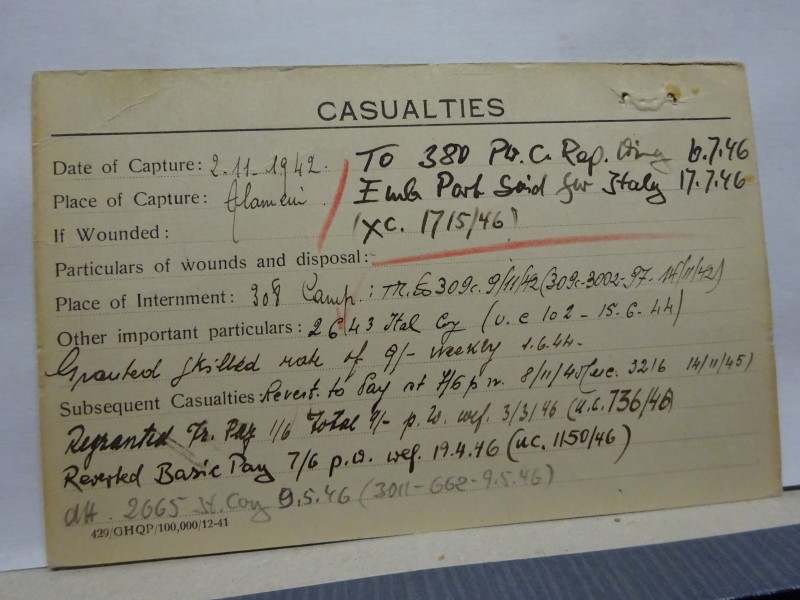 CASUALTIES
Date of Capture: 2.11.1942. To 380 Pw. C. Rep. 6.7.46
Place of Capture: Alamein Emb Port Said for Italy 17.7.46
If Wounded: (XC. 1715/46)
Particulars of wounds and disposal:
Place of Internment: 308 Camp: Tr. to 309c. 9/11/42 (309c-3002-97. 14/11/42)
Other important particulars: 2643 Ital Coy (U.C 102 - 15-6-44)
Granted skilled rate of 9/- weekly 1.6.44.
Subsequent Casualties: Revert. to Pay at 7/6 p.w. 8/11/45 (uc. 3216 14/11/45)
Regranted Tr. Pay 1/6 Total 9/- p.w. wef. 3/3/46 (U.C. 736/46)
Reverted Basic Pay 7/6 p.w. wef. 19.4.46 (UC. 1150/46)
att. 2665 It. Coy 9.5.46 (3011-662-9.5.46)
429/GHQP/100,000/12-41